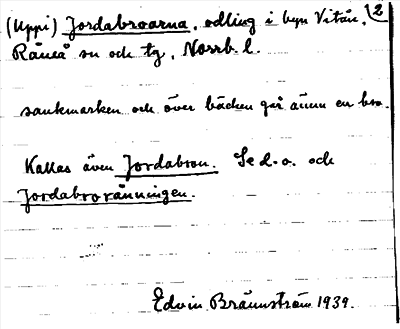 (Uppi) Jordabroarna, odling i byn Vitån, 2
Råneå sn och tg, Norrb. l.
sankmarken och över bäcken går ännu en bro.
Kallas även Jordabron. Se d.o. och
Jordabroränningen.
Edvin Brännström 1939.